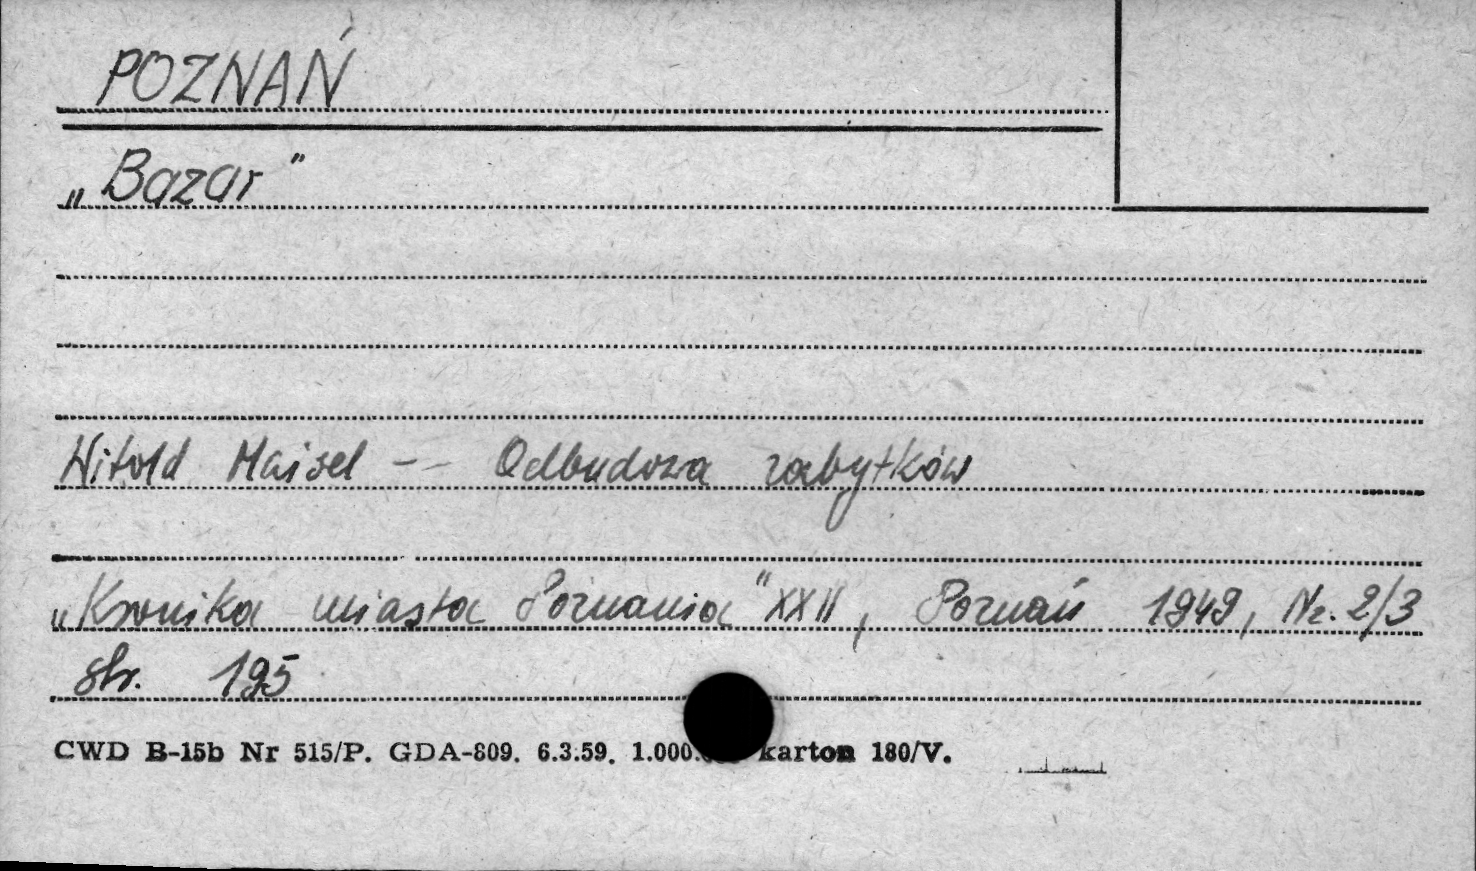 POZNAŃ
„Bazar"
Witold Maisel -- Odbudowa zabytków
„Kronika miasta Poznania" XXII, Poznań 1949, Nr. 2/3
str. 195
CWD B-15b Nr 515/P. GDA-809. 6.3.59. 1.000. karton 180/V.